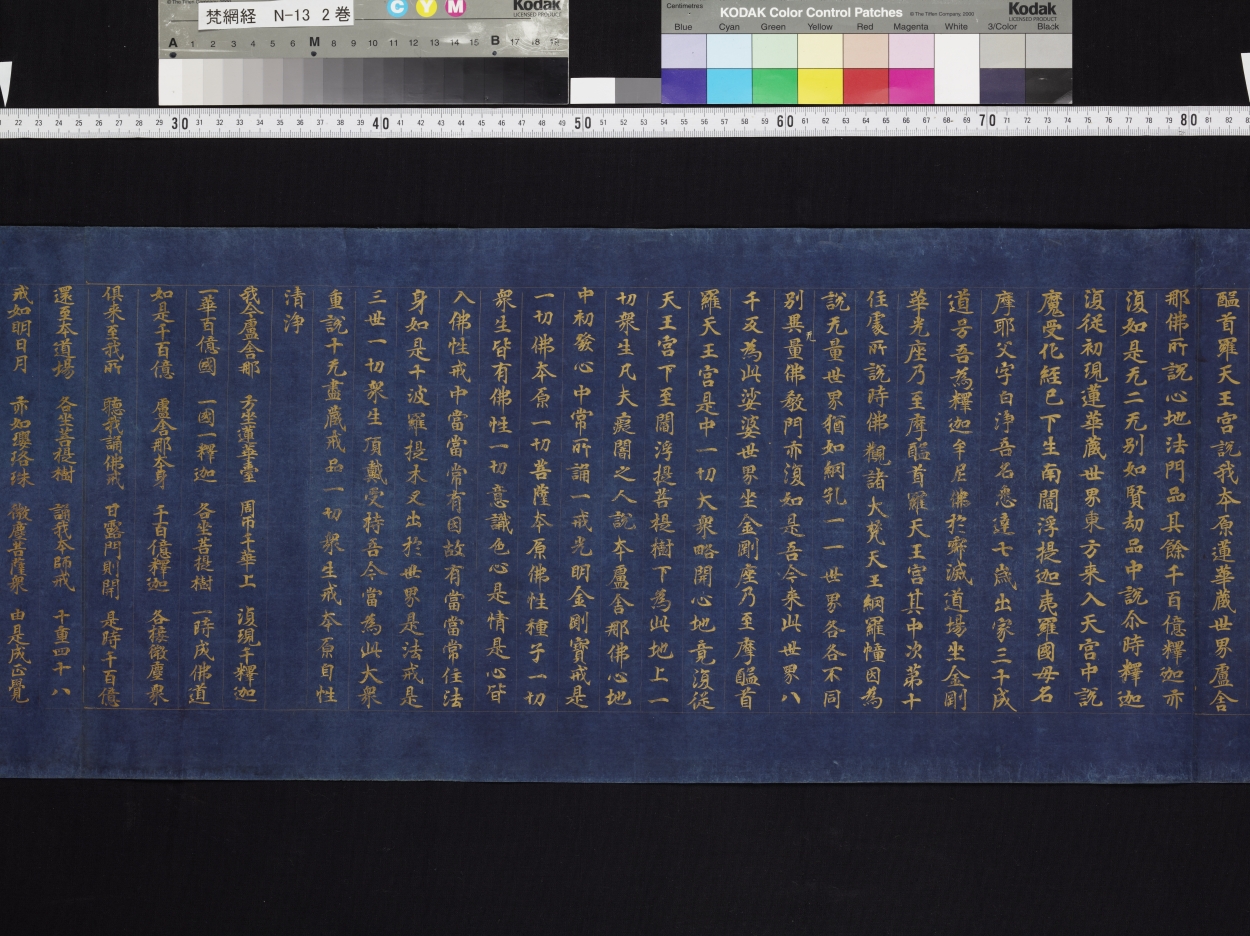 梵網経 N-13 2巻
Kodak
LICENSED PRODUCT
C Y M
A 1 2 3 4 5 6 M 8 9 10 11 12 13 14 15 B 17 18 19
Centimetres
KODAK Color Control Patches
© The Tiffen Company, 2000
Kodak
LICENSED PRODUCT
Blue Cyan Green Yellow Red Magenta White 3/Color Black
22 23 24 25 26 27 28 29 30 31 32 33 34 35 36 37 38 39 40 41 42 43 44 45 46 47 48 49 50 51 52 53 54 55 56 57 58 59 60 61 62 63 64 65 66 67 68 69 70 71 72 73 74 75 76 77 78 79 80 81 82
醯首羅天王宮説我本原蓮華蔵世界盧舎
那佛所説心地法門品其餘千百億釋迦亦
復如是无二无別如賢劫品中説尒時釋迦
復從初現蓮華蔵世界東方来入天宮中説
魔受化経已下生南閻浮提迦夷羅國母名
摩耶父字白浄吾名悉達七歳出家三千成
道号吾為釋迦牟尼佛於寂滅道場坐金剛
華光座乃至摩醯首羅天王宮其中次第十
住處所説時佛觀諸大梵天王網羅幢因為
説无量世界猶如網孔一一世界各各不同
別異量佛教門亦復如是吾今来此世界八
无
千反為此娑婆世界坐金剛座乃至摩醯首
羅天王宮是中一切大衆略開心地竟復從
天王宮下至閻浮提菩提樹下為此地上一
切衆生凡夫癡闇之人説本盧舎那佛心地
中初發心中常所誦一戒光明金剛寶戒是
一切佛本原一切菩薩本原佛性種子一切
衆生皆有佛性一切意識色心是情是心皆
入佛性戒中當當常有因故有當當常住法
身如是十波羅提木叉出於世界是法戒是
三世一切衆生頂戴受持吾今當為此大衆
重説十无盡蔵戒品一切衆生戒本原自性
清浄
我今盧舎那 方坐蓮華臺 周帀千華上 復現千釋迦
一華百億國 一國一釋迦 各坐菩提樹 一時成佛道
如是千百億 盧舎那本身 千百億釋迦 各接微塵衆
俱来至我所 聽我誦佛戒 甘露門則開 是時千百億
還至本道場 各坐菩提樹 誦我本師戒 十重四十八
戒如明日月 亦如瓔珞珠 微塵菩薩衆 由是成正覺